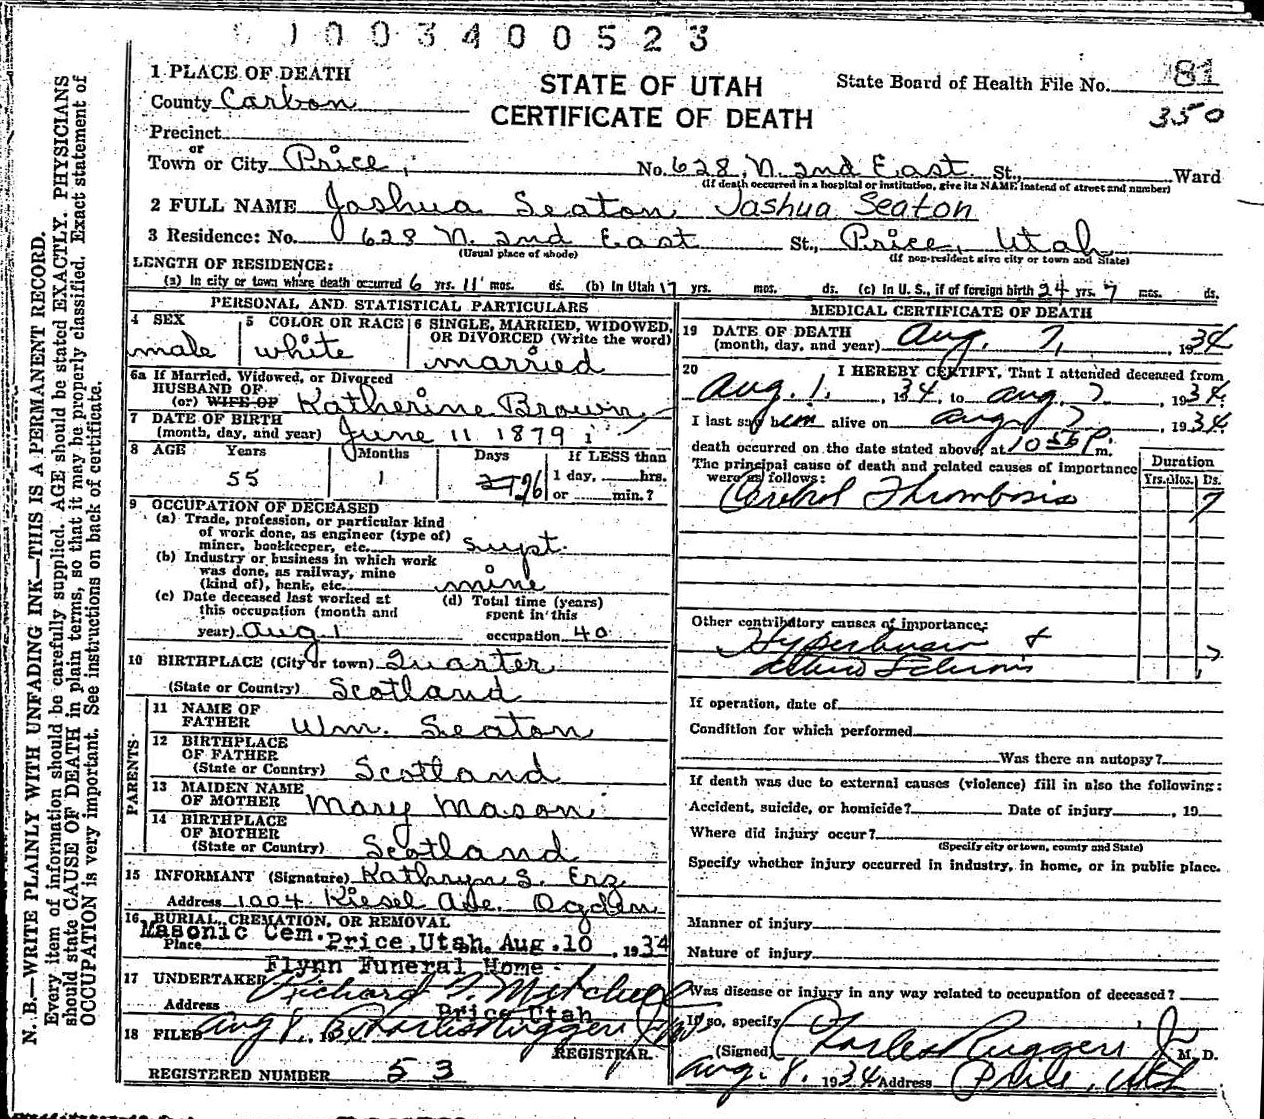 1003400523
1 PLACE OF DEATH
STATE OF UTAH
CERTIFICATE OF DEATH
State Board of Health File No. 81
350
County Carbon
Precinct
or
Town or City Price, No. 628, N. 2nd East St., Ward
(If death occurred in a hospital or institution, give its NAME instead of street and number)
2 FULL NAME Joshua Seaton Joshua Seaton
3 Residence: No. 628 N. 2nd East St., Price, Utah
(Usual place of abode) (If non-resident give city or town and State)
LENGTH OF RESIDENCE:
(a) In city or town where death occurred 6 yrs. 11 mos. ds. (b) In Utah 17 yrs. mos. ds. (c) In U. S., if of foreign birth 24 yrs. 7 mos. ds.
PERSONAL AND STATISTICAL PARTICULARS
4 SEX male
5 COLOR OR RACE white
6 SINGLE, MARRIED, WIDOWED, OR DIVORCED (Write the word) married
6a If Married, Widowed, or Divorced
HUSBAND OF
(or) WIFE OF Katherine Brown
7 DATE OF BIRTH
(month, day, and year) June 11 1879
8 AGE Years 55 Months 1 Days 26 If LESS than
1 day, hrs.
or min.?
9 OCCUPATION OF DECEASED
(a) Trade, profession, or particular kind
of work done, as engineer (type of)
miner, bookkeeper, etc. Supt.
(b) Industry or business in which work
was done, as railway, mine
(kind of), bank, etc. mine
(c) Date deceased last worked at
this occupation (month and
year) Aug 1
(d) Total time (years)
spent in this
occupation 40
10 BIRTHPLACE (City or town) Quarter
(State or Country) Scotland
PARENTS
11 NAME OF
FATHER Wm. Seaton
12 BIRTHPLACE
OF FATHER
(State or Country) Scotland
13 MAIDEN NAME
OF MOTHER Mary Mason
14 BIRTHPLACE
OF MOTHER
(State or Country) Scotland
15 INFORMANT (Signature) Kathryn S. Erz
Address 1004 Kiesel Ave. Ogden
16 BURIAL, CREMATION, OR REMOVAL
Place Masonic Cem. Price, Utah. Date Aug. 10, 1934
Flynn Funeral Home
17 UNDERTAKER Richard T. Mitchell
Address Price Utah
18 FILED Aug 8. Charles Ruggeri
REGISTRAR.
REGISTERED NUMBER 53
MEDICAL CERTIFICATE OF DEATH
19 DATE OF DEATH
(month, day, and year) Aug. 7, 1934
20 I HEREBY CERTIFY, That I attended deceased from
Aug. 1, 1934, to Aug 7, 1934.
I last saw him alive on Aug 7, 1934.
death occurred on the date stated above, at 10 55 P. m.
The principal cause of death and related causes of importance
were as follows:
Duration
Yrs. Mos. Ds.
Cerebral Thrombosis 7
Other contributory causes of importance:
If operation, date of
Condition for which performed
Was there an autopsy?
If death was due to external causes (violence) fill in also the following:
Accident, suicide, or homicide? Date of injury , 19
Where did injury occur?
(Specify city or town, county and State)
Specify whether injury occurred in industry, in home, or in public place.
Manner of injury
Nature of injury
Was disease or injury in any way related to occupation of deceased?
If so, specify
(Signed) Charles Ruggeri Jr. M. D.
Aug. 8. 1934 Address Price, Utah
N. B.—WRITE PLAINLY WITH UNFADING INK—THIS IS A PERMANENT RECORD.
Every item of information should be carefully supplied. AGE should be stated EXACTLY. PHYSICIANS
should state CAUSE OF DEATH in plain terms, so that it may be properly classified. Exact statement of
OCCUPATION is very important. See instructions on back of certificate.